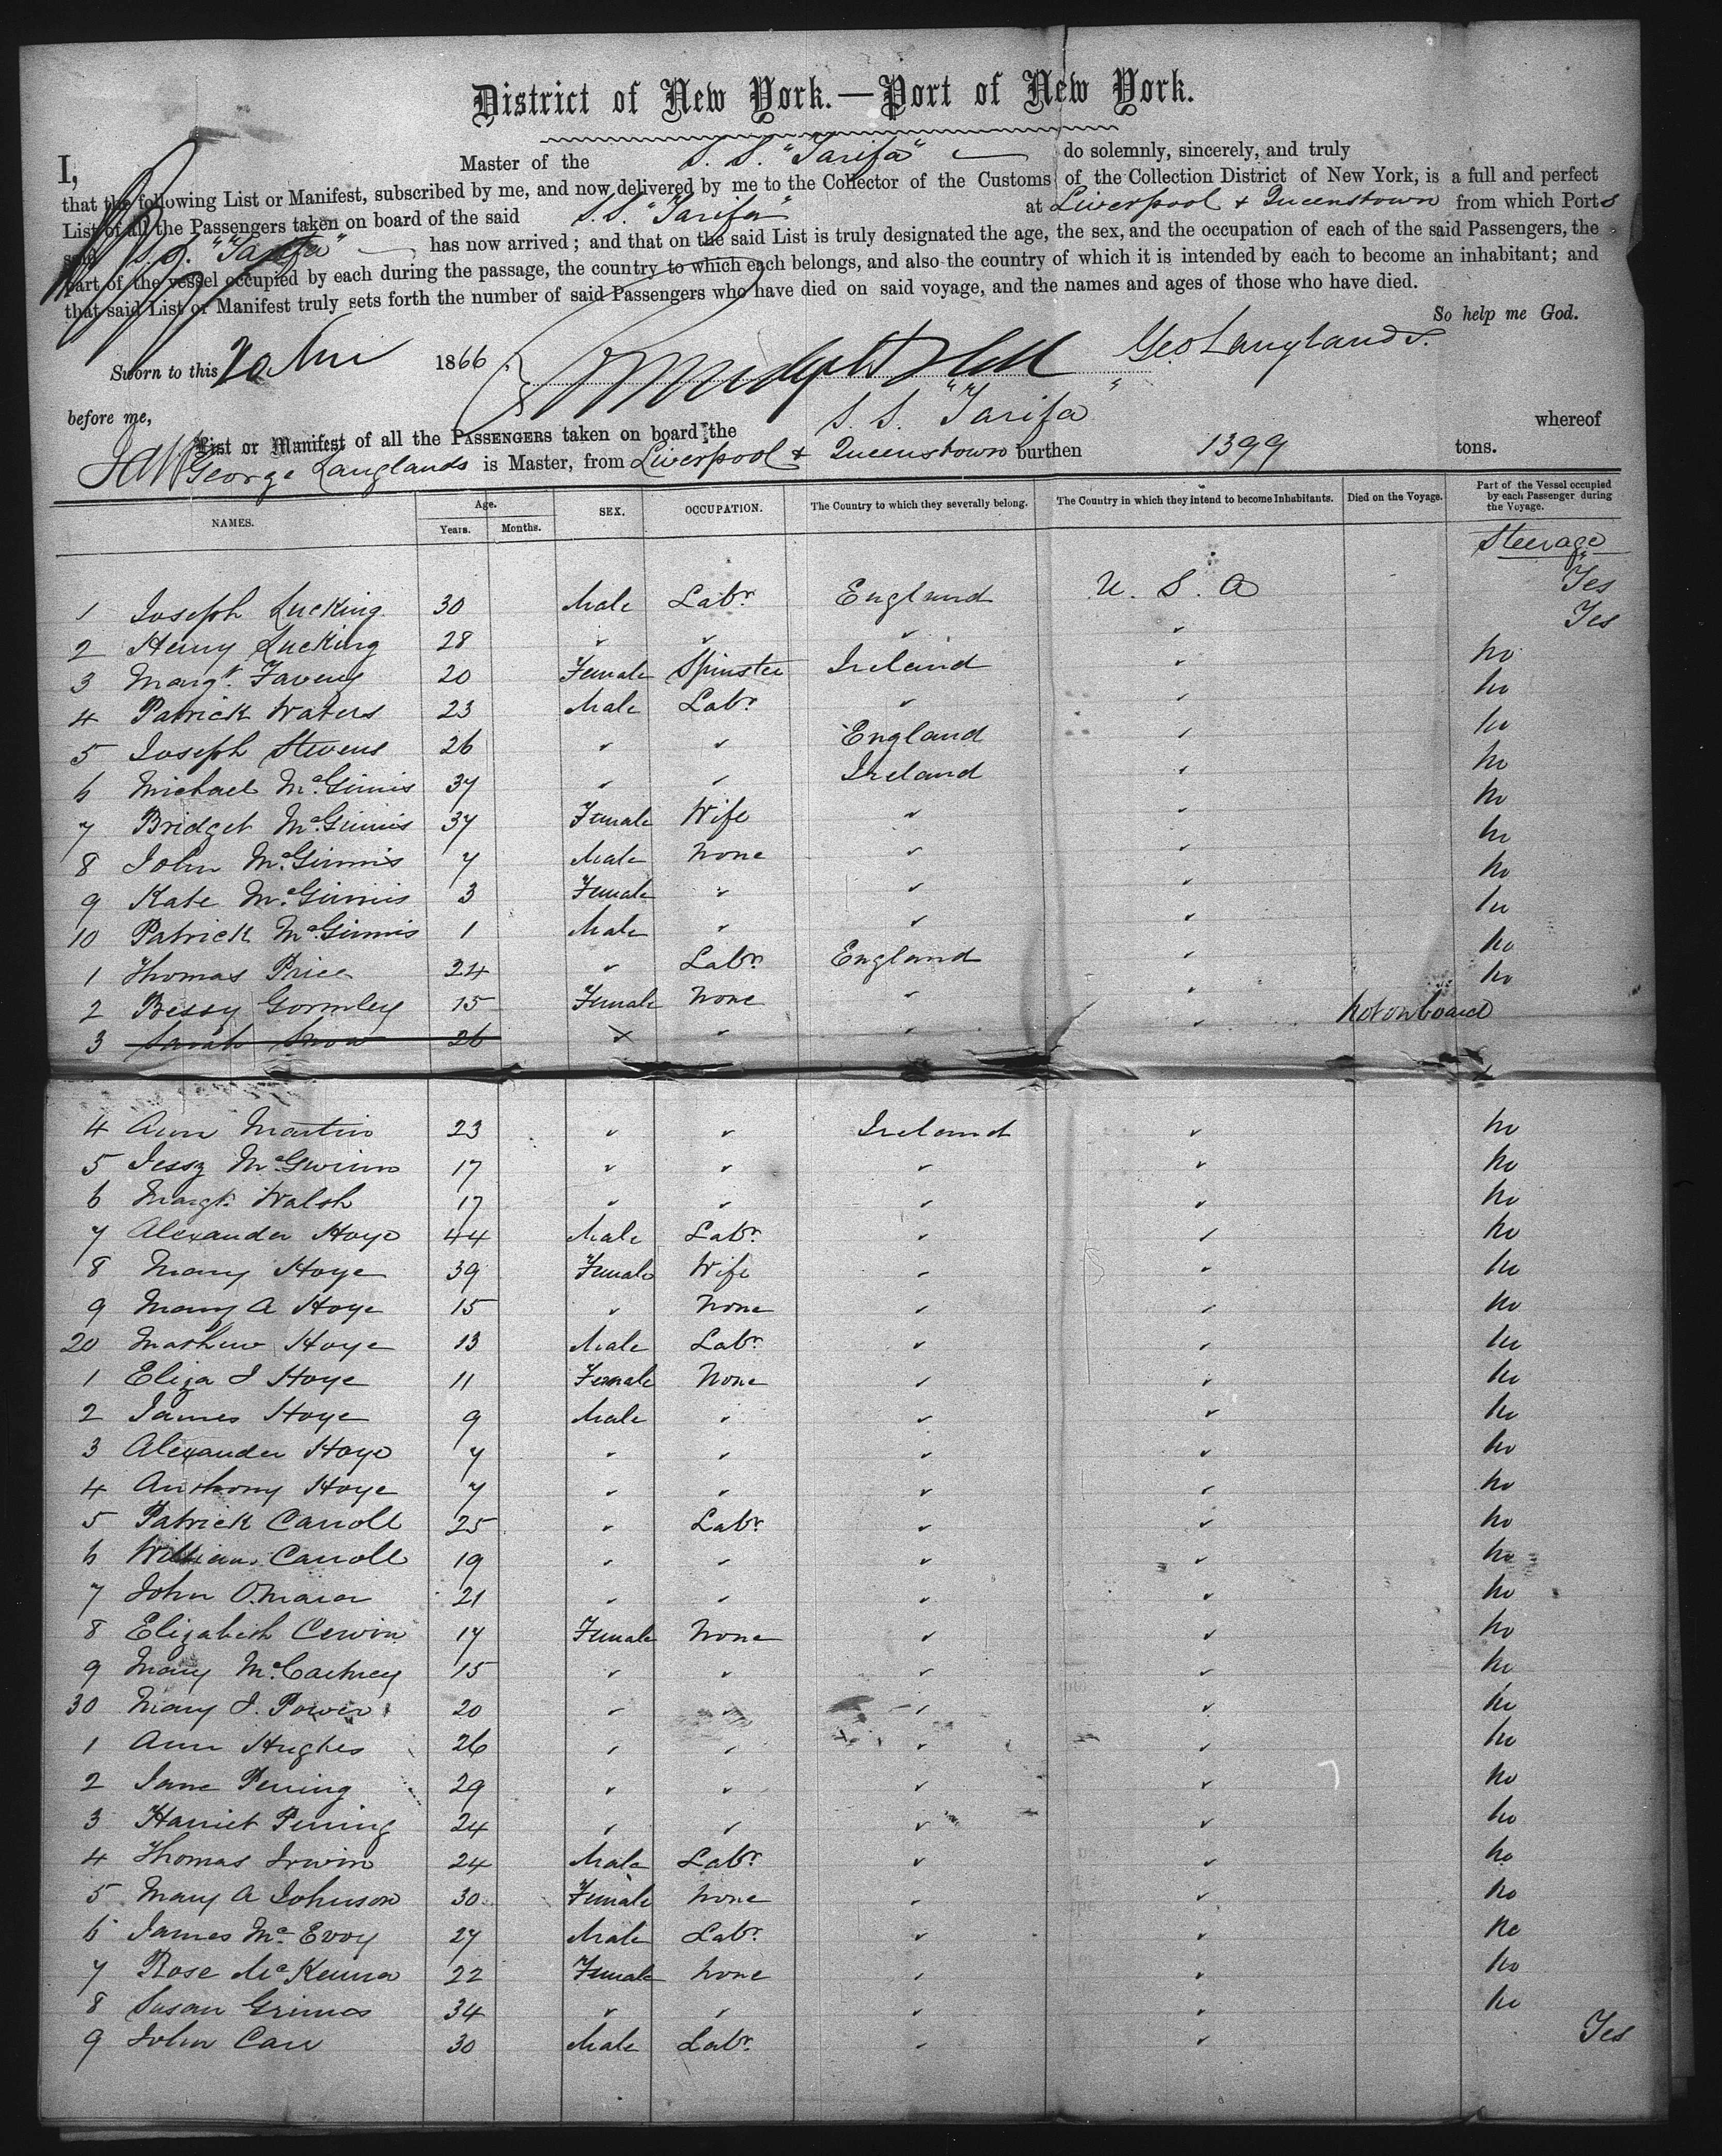 District of New York.—Port of New York.
I, Master of the S. S. "Tarifa" do solemnly, sincerely, and truly
that the following List or Manifest, subscribed by me, and now delivered by me to the Collector of the Customs of the Collection District of New York, is a full and perfect
List of all the Passengers taken on board of the said S.S. "Tarifa" at Liverpool + Queenstown from which Ports
said S.S. "Tarifa" has now arrived; and that on the said List is truly designated the age, the sex, and the occupation of each of the said Passengers, the
part of the vessel occupied by each during the passage, the country to which each belongs, and also the country of which it is intended by each to become an inhabitant; and
that said List or Manifest truly sets forth the number of said Passengers who have died on said voyage, and the names and ages of those who have died.
So help me God.
Sworn to this 20 1866 Geo Langlands.
before me,
List or Manifest of all the PASSENGERS taken on board the S. S. "Tarifa" whereof
George Langlands is Master, from Liverpool + Queenstown burthen 1399 tons.
NAMES. Age. Years. Months. SEX. OCCUPATION. The Country to which they severally belong. The Country in which they intend to become Inhabitants. Died on the Voyage. Part of the Vessel occupied by each Passenger during the Voyage.
Steerage
1 Joseph Lucking 30 Male Labr. England U. S. A Yes
2 Henry Lucking 28 " " " " Yes
3 Margt. 20 Female Spinster Ireland " No
4 Patrick Waters 23 Male Labr. " " No
5 Joseph Stevens 26 " " England " No
6 Michael McGinnis 37 " " Ireland " No
7 Bridget McGinnis 37 Female Wife " " No
8 John McGinnis 7 Male None " " No
9 Kate McGinnis 3 Female " " " No
10 Patrick McGinnis 1 Male " " " No
1 Thomas Price 24 " Labr. England " No
2 Bessy Gormley 15 Female None " " No
3 Sarah Snow 26 × " " " Not on board
4 Ann Martin 23 " " Ireland " No
5 Jessy McGwinn 17 " " " " No
6 Margt. Walsh 17 " " " " No
7 Alexander Hoye 44 Male Labr. " " No
8 Mary Hoye 39 Female Wife " " No
9 Mary A Hoye 15 " None " " No
20 Mathew Hoye 13 Male Labr. " " No
1 Eliza J Hoye 11 Female None " " No
2 James Hoye 9 Male " " " No
3 Alexander Hoye 7 " " " " No
4 Anthony Hoye 7 " " " " No
5 Patrick Carroll 25 " Labr. " " No
6 William Carroll 19 " " " " No
7 John O.Mara 21 " " " " No
8 Elizabeth Cerwin 17 Female None " " No
9 Mary McCartney 15 " " " " No
30 Mary J. Power 20 " " " " No
1 Ann Hughes 26 " " " " No
2 Jane Pening 29 " " " " No
3 Harriet Pening 24 " " " " No
4 Thomas Irwin 24 Male Labr. " " No
5 Mary A Johnson 30 Female None " " No
6 James McEvoy 27 Male Labr. " " No
7 Rose McKenna 22 Female None " " No
8 Susan Grimes 34 " " " " No
9 John Carr 30 Male Labr. " " Yes